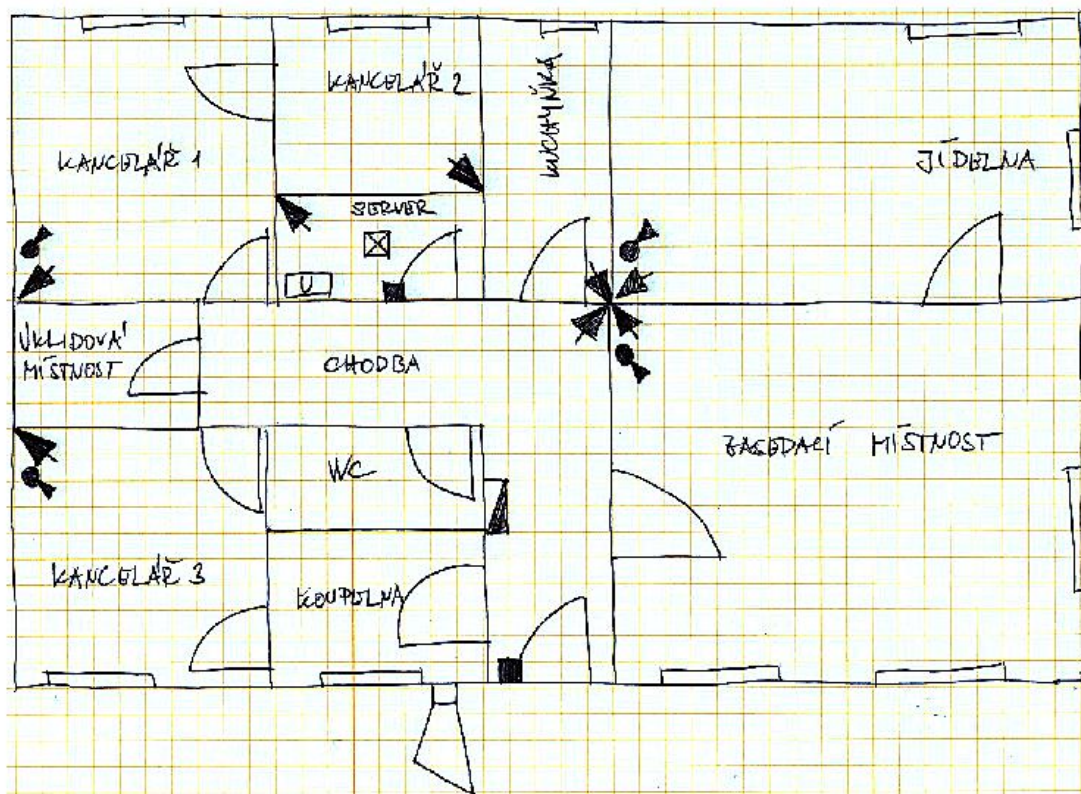 KANCELÁŘ 2
KUCHYŇKA
KANCELÁŘ 1
JÍDELNA
SERVER
U
ÚKLIDOVÁ
MÍSTNOST
CHODBA
ZASEDACÍ MÍSTNOST
WC
KANCELÁŘ 3
KOUPELNA